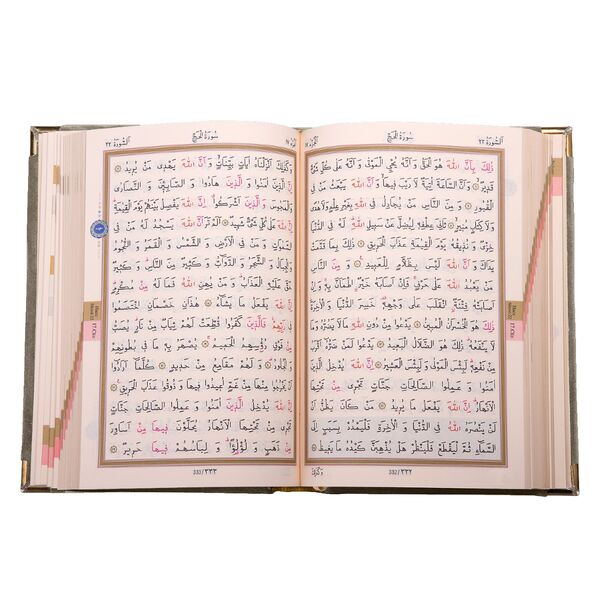 اَلسُّورَةُ ٢٢
سُورَةُ الْحَجِّ
ذٰلِكَ بِاَنَّ اللّٰهَ هُوَ الْحَقُّ وَاَنَّهُ يُحْيِي الْمَوْتٰى وَاَنَّهُ عَلٰى كُلِّ شَيْءٍ
قَدِيرٌ وَاَنَّ السَّاعَةَ اٰتِيَةٌ لَا رَيْبَ فِيهَا وَاَنَّ اللّٰهَ يَبْعَثُ مَنْ فِي
الْقُبُورِ وَ مِنَ النَّاسِ مَنْ يُجَادِلُ فِي اللّٰهِ بِغَيْرِ عِلْمٍ وَلَا هُدًى
وَلَا كِتَابٍ مُنِيرٍ ثَانِيَ عِطْفِهِ لِيُضِلَّ عَنْ سَبِيلِ اللّٰهِ لَهُ فِي الدُّنْيَا
خِزْيٌ وَ نُذِيقُهُ يَوْمَ الْقِيٰمَةِ عَذَابَ الْحَرِيقِ ذٰلِكَ بِمَا قَدَّمَتْ
يَدَاكَ وَاَنَّ اللّٰهَ لَيْسَ بِظَلَّامٍ لِلْعَبِيدِ وَ مِنَ النَّاسِ
مَنْ يَعْبُدُ اللّٰهَ عَلٰى حَرْفٍ فَاِنْ اَصَابَهُ خَيْرٌ اطْمَاَنَّ بِهِ وَاِنْ
اَصَابَتْهُ فِتْنَةٌ انْقَلَبَ عَلٰى وَجْهِهِ خَسِرَ الدُّنْيَا وَالْاٰخِرَةَ
ذٰلِكَ هُوَ الْخُسْرَانُ الْمُبِينُ يَدْعُوا مِنْ دُونِ اللّٰهِ مَا لَا يَضُرُّهُ وَمَا
لَا يَنْفَعُهُ ذٰلِكَ هُوَ الضَّلَالُ الْبَعِيدُ يَدْعُوا لَمَنْ ضَرُّهُ اَقْرَبُ
مِنْ نَفْعِهِ لَبِئْسَ الْمَوْلٰى وَلَبِئْسَ الْعَشِيرُ اِنَّ اللّٰهَ يُدْخِلُ الَّذِينَ
اٰمَنُوا وَ عَمِلُوا الصَّالِحَاتِ جَنَّاتٍ تَجْرِي مِنْ تَحْتِهَا
الْاَنْهَارُ اِنَّ اللّٰهَ يَفْعَلُ مَا يُرِيدُ مَنْ كَانَ يَظُنُّ اَنْ لَنْ
يَنْصُرَهُ اللّٰهُ فِي الدُّنْيَا وَالْاٰخِرَةِ فَلْيَمْدُدْ بِسَبَبٍ اِلَى
السَّمَاءِ ثُمَّ لْيَقْطَعْ فَلْيَنْظُرْ هَلْ يُذْهِبَنَّ كَيْدُهُ مَا يَغِيظُ
332/٣٣٢
وَكَذٰلِكَ
17.Cüz
اَلسُّورَةُ ٢٢
سُورَةُ الْحَجِّ
وَكَذٰلِكَ اَنْزَلْنَاهُ اٰيَاتٍ بَيِّنَاتٍ وَاَنَّ اللّٰهَ يَهْدِي مَنْ يُرِيدُ
اِنَّ الَّذِينَ اٰمَنُوا وَالَّذِينَ هَادُوا وَ الصَّابِئِينَ وَ النَّصَارٰى
وَالْمَجُوسَ وَالَّذِينَ اَشْرَكُوا اِنَّ اللّٰهَ يَفْصِلُ بَيْنَهُمْ يَوْمَ الْقِيٰمَةِ
اِنَّ اللّٰهَ عَلٰى كُلِّ شَيْءٍ شَهِيدٌ اَلَمْ تَرَ اَنَّ اللّٰهَ يَسْجُدُ لَهُ مَنْ فِي
السَّمٰوَاتِ وَ مَنْ فِي الْاَرْضِ وَ الشَّمْسُ وَ الْقَمَرُ وَ النُّجُومُ
وَالْجِبَالُ وَ الشَّجَرُ وَ الدَّوَابُّ وَ كَثِيرٌ مِنَ النَّاسِ وَ كَثِيرٌ
حَقَّ عَلَيْهِ الْعَذَابُ وَ مَنْ يُهِنِ اللّٰهُ فَمَا لَهُ مِنْ مُكْرِمٍ
اِنَّ اللّٰهَ يَفْعَلُ مَا يَشَاءُ هٰذَانِ خَصْمَانِ اخْتَصَمُوا
فِي رَبِّهِمْ فَالَّذِينَ كَفَرُوا قُطِّعَتْ لَهُمْ ثِيَابٌ مِنْ نَارٍ يُصَبُّ
مِنْ فَوْقِ رُؤُسِهِمُ الْحَمِيمُ يُصْهَرُ بِهِ مَا فِي بُطُونِهِمْ
وَالْجُلُودُ وَ لَهُمْ مَقَامِعُ مِنْ حَدِيدٍ كُلَّمَا اَرَادُوا اَنْ
يَخْرُجُوا مِنْهَا مِنْ غَمٍّ اُعِيدُوا فِيهَا وَ ذُوقُوا عَذَابَ الْحَرِيقِ
اِنَّ اللّٰهَ يُدْخِلُ الَّذِينَ اٰمَنُوا وَ عَمِلُوا الصَّالِحَاتِ جَنَّاتٍ
تَجْرِي مِنْ تَحْتِهَا الْاَنْهَارُ يُحَلَّوْنَ فِيهَا مِنْ اَسَاوِرَ
مِنْ ذَهَبٍ وَ لُؤْلُؤًا وَ لِبَاسُهُمْ فِيهَا حَرِيرٌ
333/٣٣٣
17.Cüz